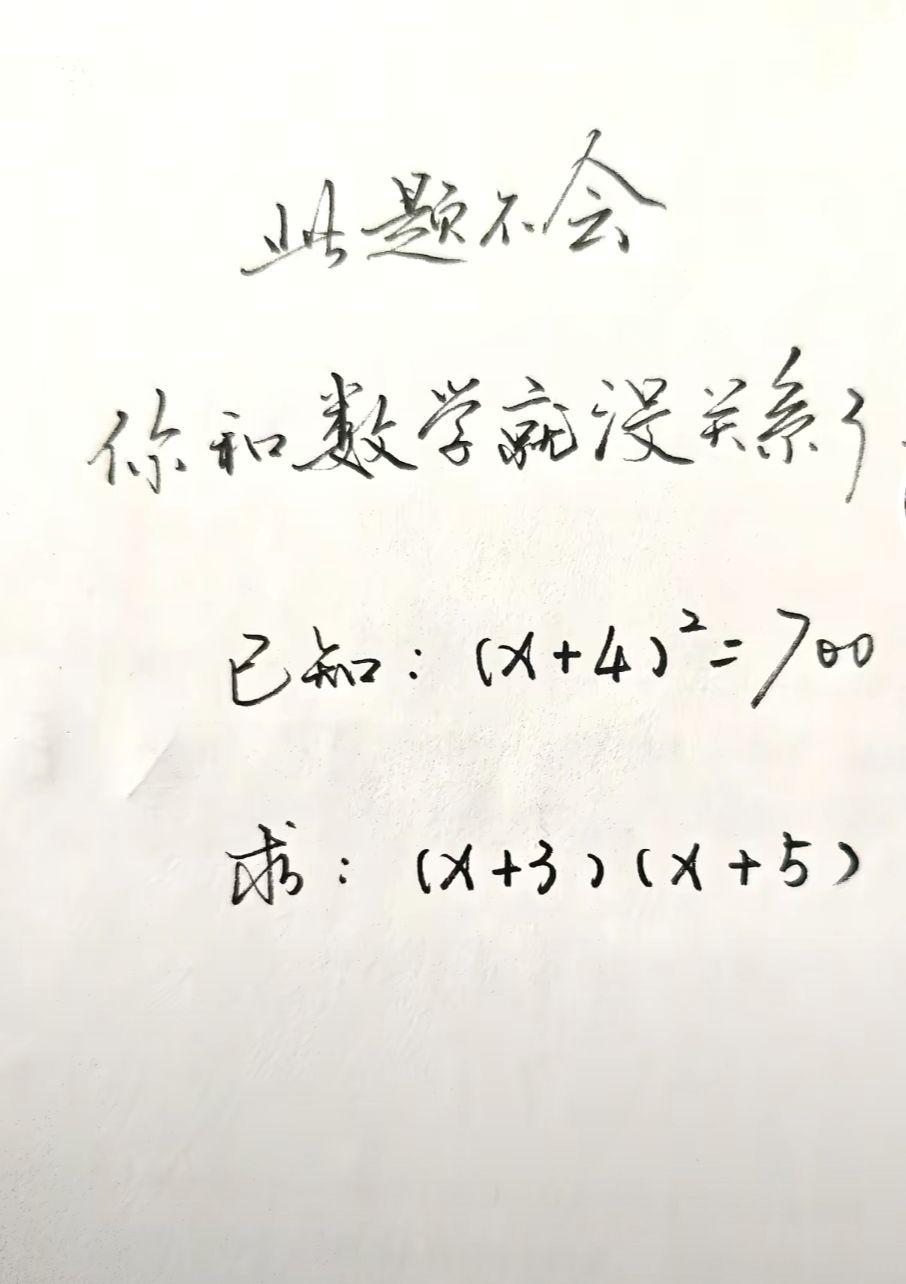 此题不会
你和数学就没关系了
已知：(x+4)²=700
求：(x+3)(x+5)